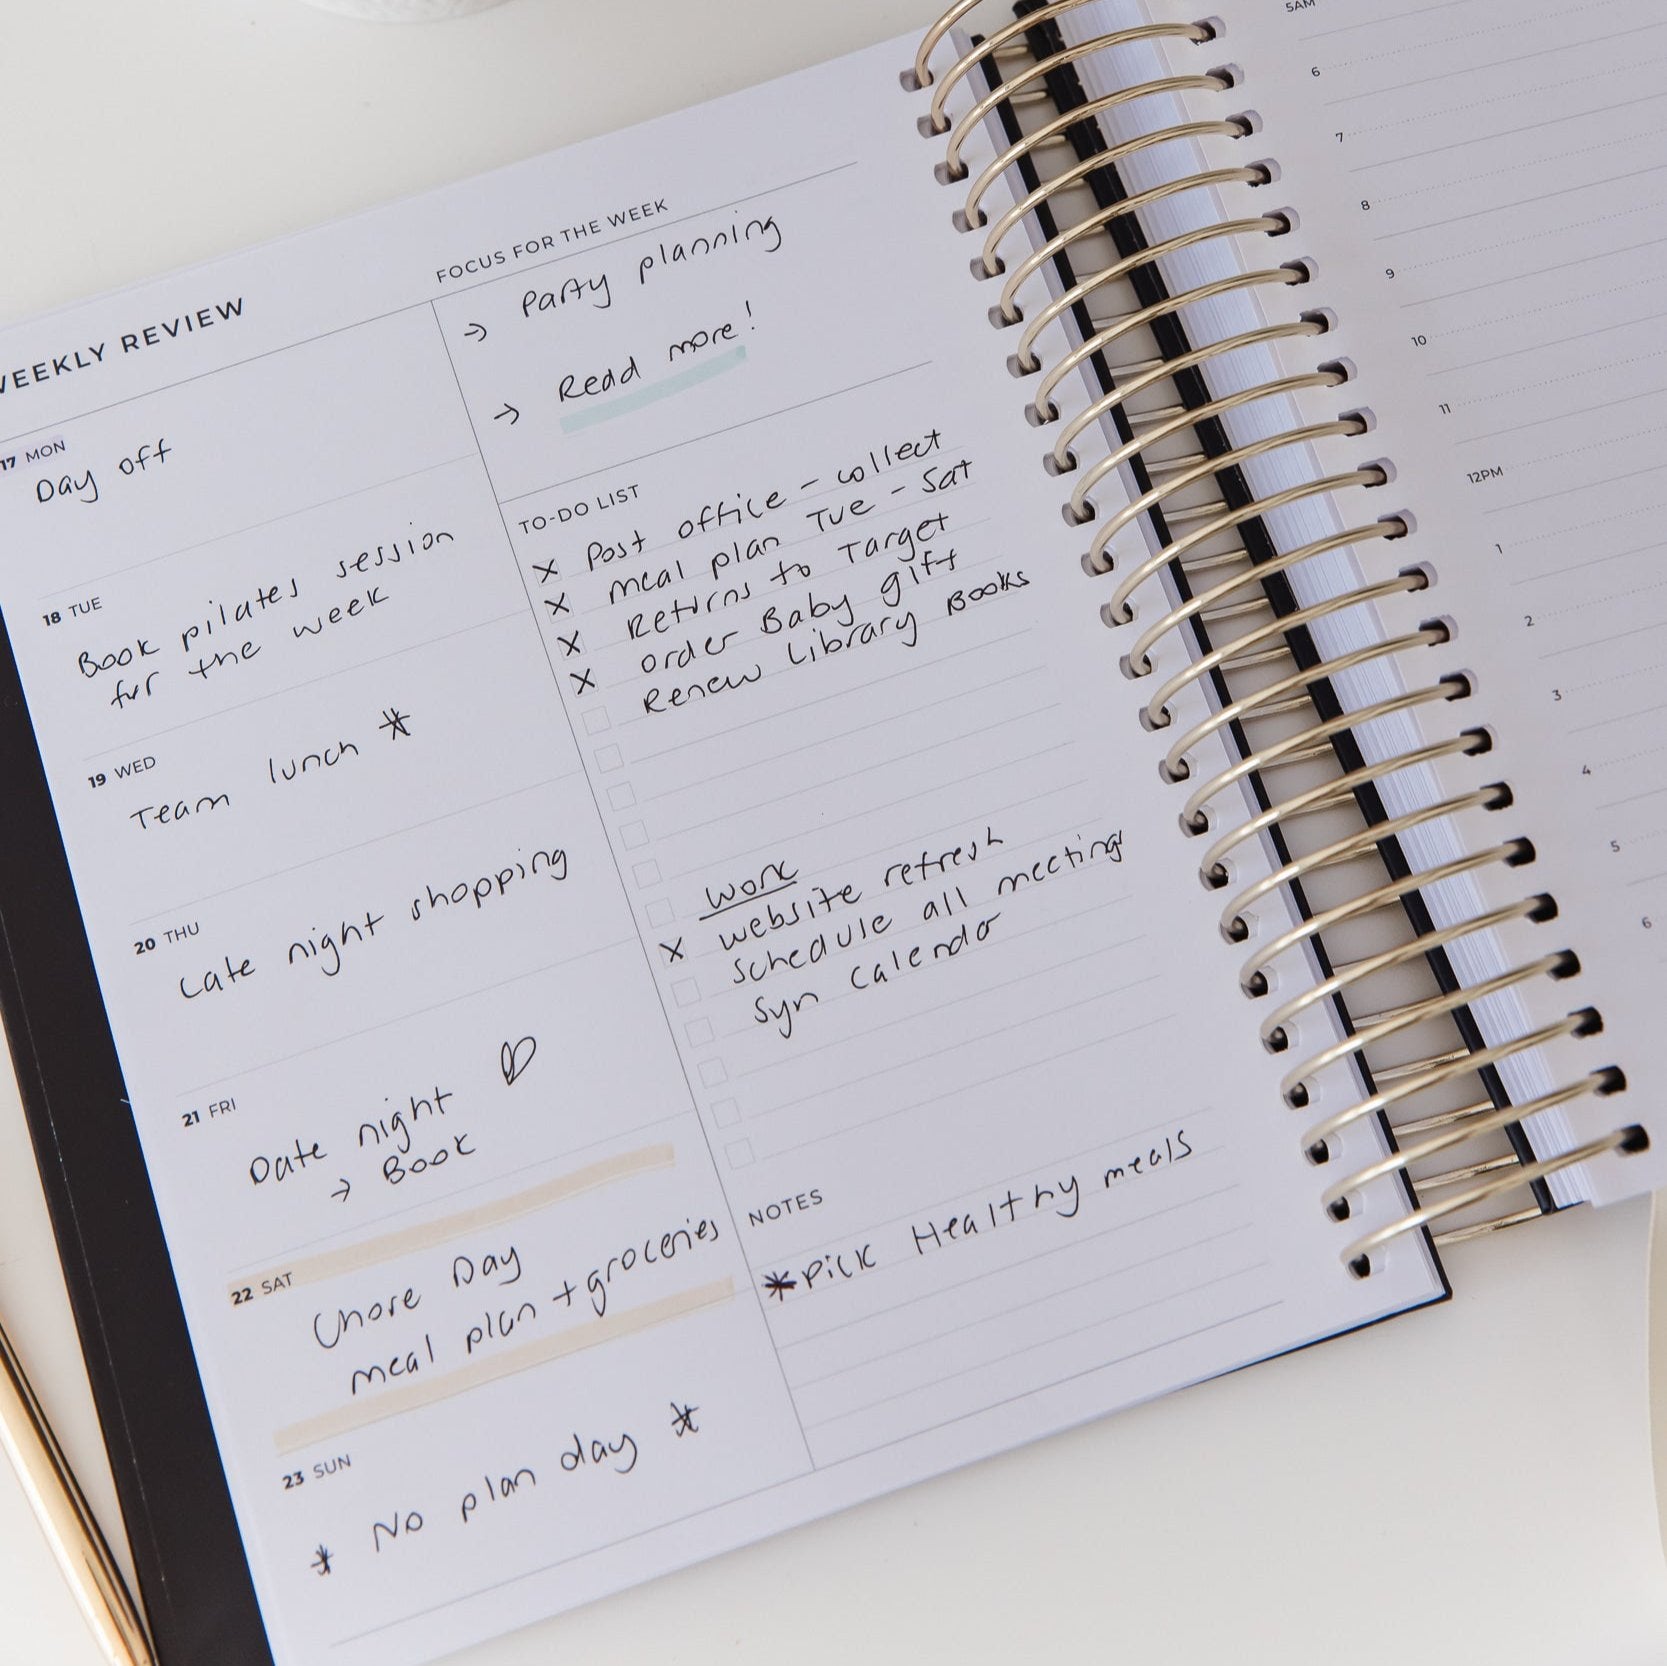 WEEKLY REVIEW
17 MON
Day off
18 TUE
Book pilates session
for the week
19 WED
Team lunch *
20 THU
Late night shopping
21 FRI
Date night ♡
→ Book
22 SAT
Chore Day
meal plan + groceries
23 SUN
* No plan day *
FOCUS FOR THE WEEK
→ Party planning
→ Read more!
TO-DO LIST
X Post office - collect
X meal plan Tue - Sat
X Returns to Target
X order Baby gift
Renew Library Books
Work
X website refresh
Schedule all meetings
Syn Calendar
NOTES
* Pick Healthy meals
5AM
6
7
8
9
10
11
12PM
1
2
3
4
5
6